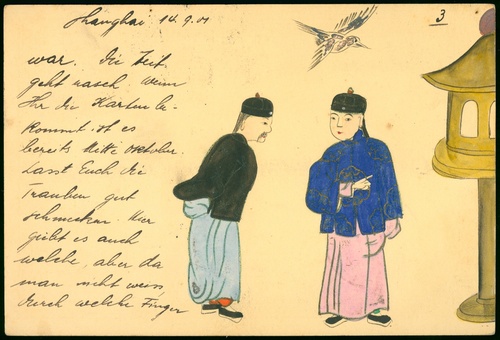 Shanghai 14.9.01
3
war. Die Zeit
geht rasch wenn
Ihr die Karten be-
kommt ist es
bereits Mitte Oktober.
Lasst Euch die
Trauben gut
schmecken. Hier
giebt es auch
welche, aber da
man nicht weiss
durch welche Finger